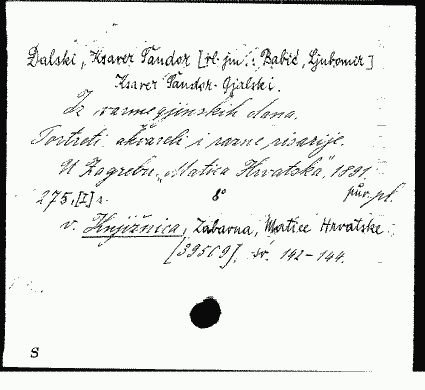 Dalski, Ksaver Šandor [vl. jm.: Babić, Ljubomir]
Ksaver Šandor-Gjalski.
Iz varmegjinskih dana.
Portreti akvareli i razne risarije.
U Zagrebu, "Matica Hrvatska", 1891.
275, [I] s. 8° pův. pl.
v. Knjižnica, Zabavna, Matice Hrvatske
[39509]. sv. 142-144.
S